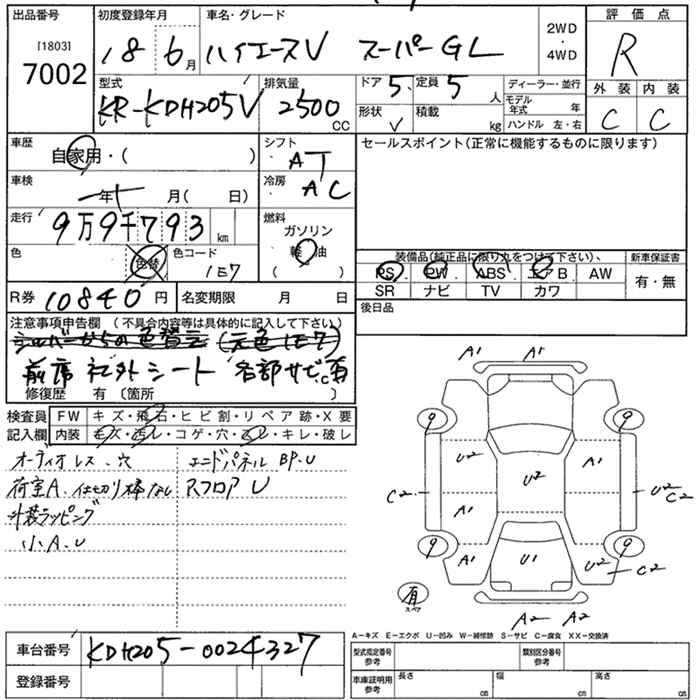 出品番号
[1803]
7002
初度登録年月
18 6月
車名・グレード
ハイエースV スーパーGL
2WD
・
4WD
評価点
R
外装 内装
C C
型式
KR-KDH205V
排気量
2500
CC
ドア 5
定員 5人
形状 V
積載 kg
ディーラー・並行
モデル年式 年
ハンドル 左・右
車歴
自家用・( )
シフト
AT
車検
年 月( 日)
冷房
AC
走行
9万9千793 km
燃料
ガソリン
軽油
( )
色
色替
色コード
1E7
R券 10840円
名変期限 月 日
セールスポイント(正常に機能するものに限ります)
装備品(純正品に限り丸をつけて下さい)、
PS PW ABS エアB AW
SR ナビ TV カワ
新車保証書
有・無
後日品
注意事項申告欄 (不具合内容等は具体的に記入して下さい)
シルバーからの色替え (元色1E7)
前席 社外シート 各部サビ.C有
修復歴 有 〔箇所 〕
検査員記入欄
FW キズ・飛石・ヒビ割・リペア跡・X要
内装 キズ・汚レ・コゲ・穴・スレ・キレ・破レ
オーディオレス、穴 エンドパネル BP.U
荷室A. 仕切り棒なし Rフロア U
外装ラッピング
小A.U
A1 A1
9 9
U2 U2 A1
C2 U2
C2
A1
9 9
A1 U1 U2
C2
有
スペア
A2 A2
A−キズ E−エクボ U−凹み W−補修跡 S−サビ C−腐食 XX−交換済
車台番号 KDH205-0024327
登録番号
型式指定番号
参考
類別区分番号
参考
車庫証明用
参考
長さ cm
幅 cm
高さ cm